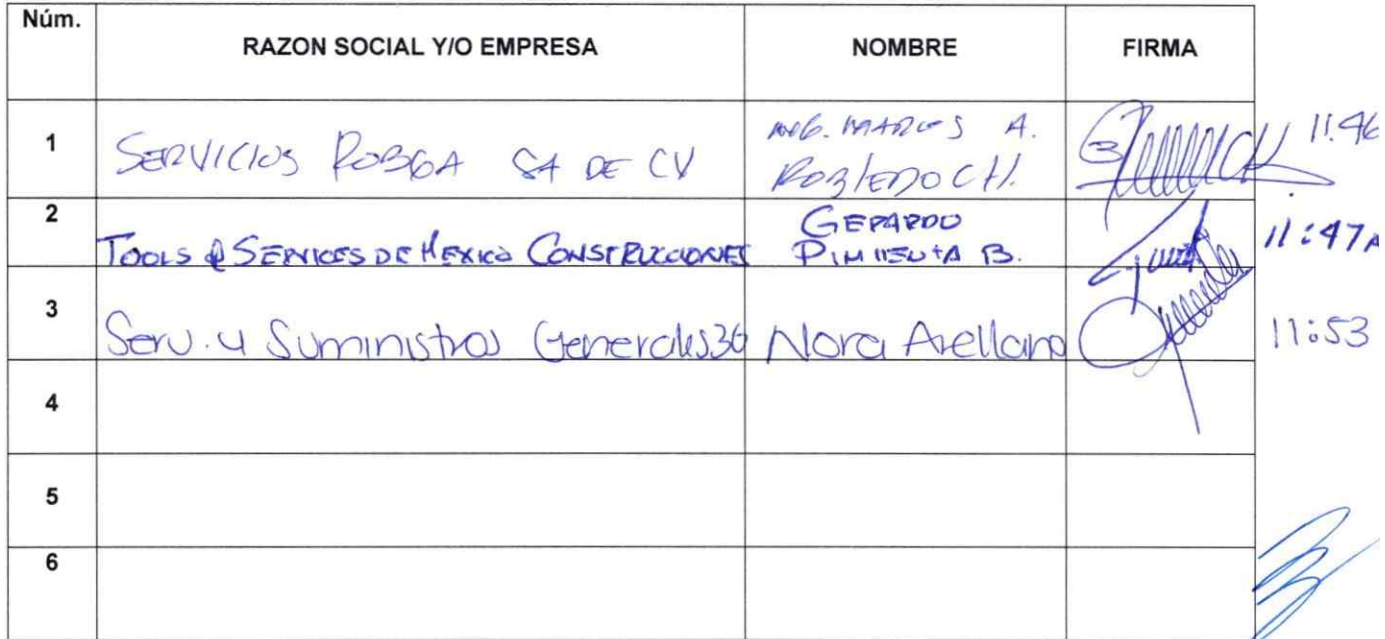 Núm. RAZON SOCIAL Y/O EMPRESA NOMBRE FIRMA
1 SERVICIOS ROBGA SA DE CV ING. MARCOS A. 11:46
ROBLEDO CH.
2 GERARDO
TOOLS & SERVICES DE MEXICO CONSTRUCCIONES PIMIENTA B. 11:47A
3
Serv. y Suministros Generales 36 Nora Arellano 11:53
4
5
6